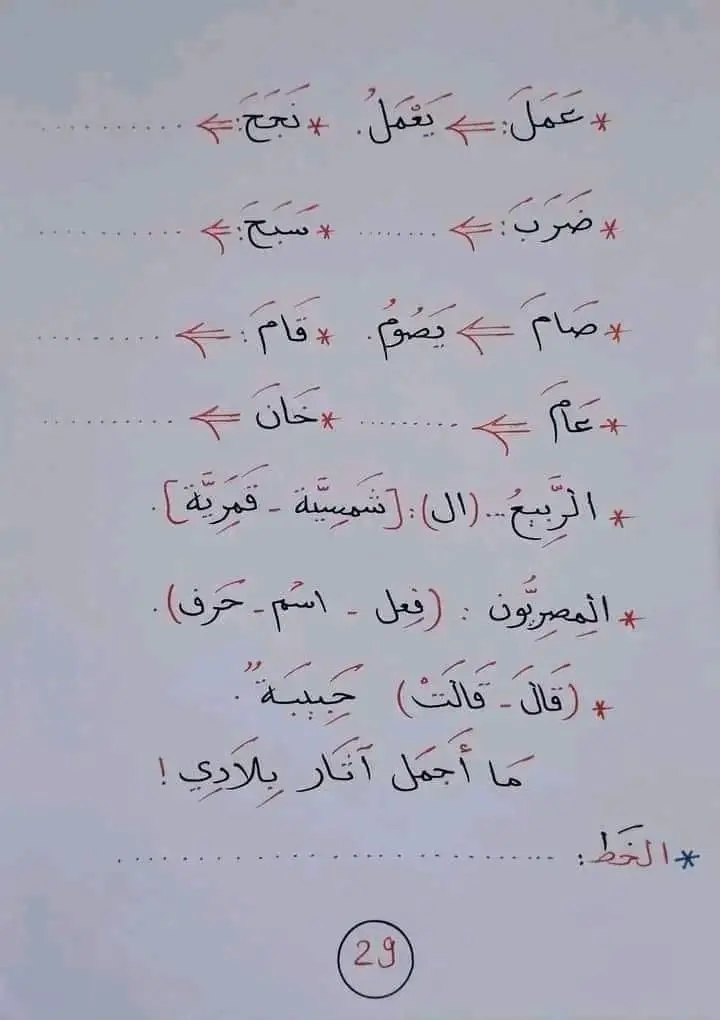 * عَمَلَ: ⇐ يَعْمَلُ. * نَجَحَ: ⇐ ..........
* ضَرَبَ: ⇐ ....... * سَبَحَ: ⇐ ..........
* صَامَ ⇐ يَصُومُ. * قَامَ: ⇐ ..........
* عَامَ ⇐ ......... * خَانَ ⇐ ..........
* الرَّبِيعُ...(ال): [شَمسِيَّة - قَمَرِيَّة].
* المِصرِيُّون : (فِعل - اسْم - حَرف).
* (قَالَ - قَالَتْ) حَبِيبَةٌ".
مَا أَجمَل آثَار بِلَادِي !
* الخَط: ..............................
29